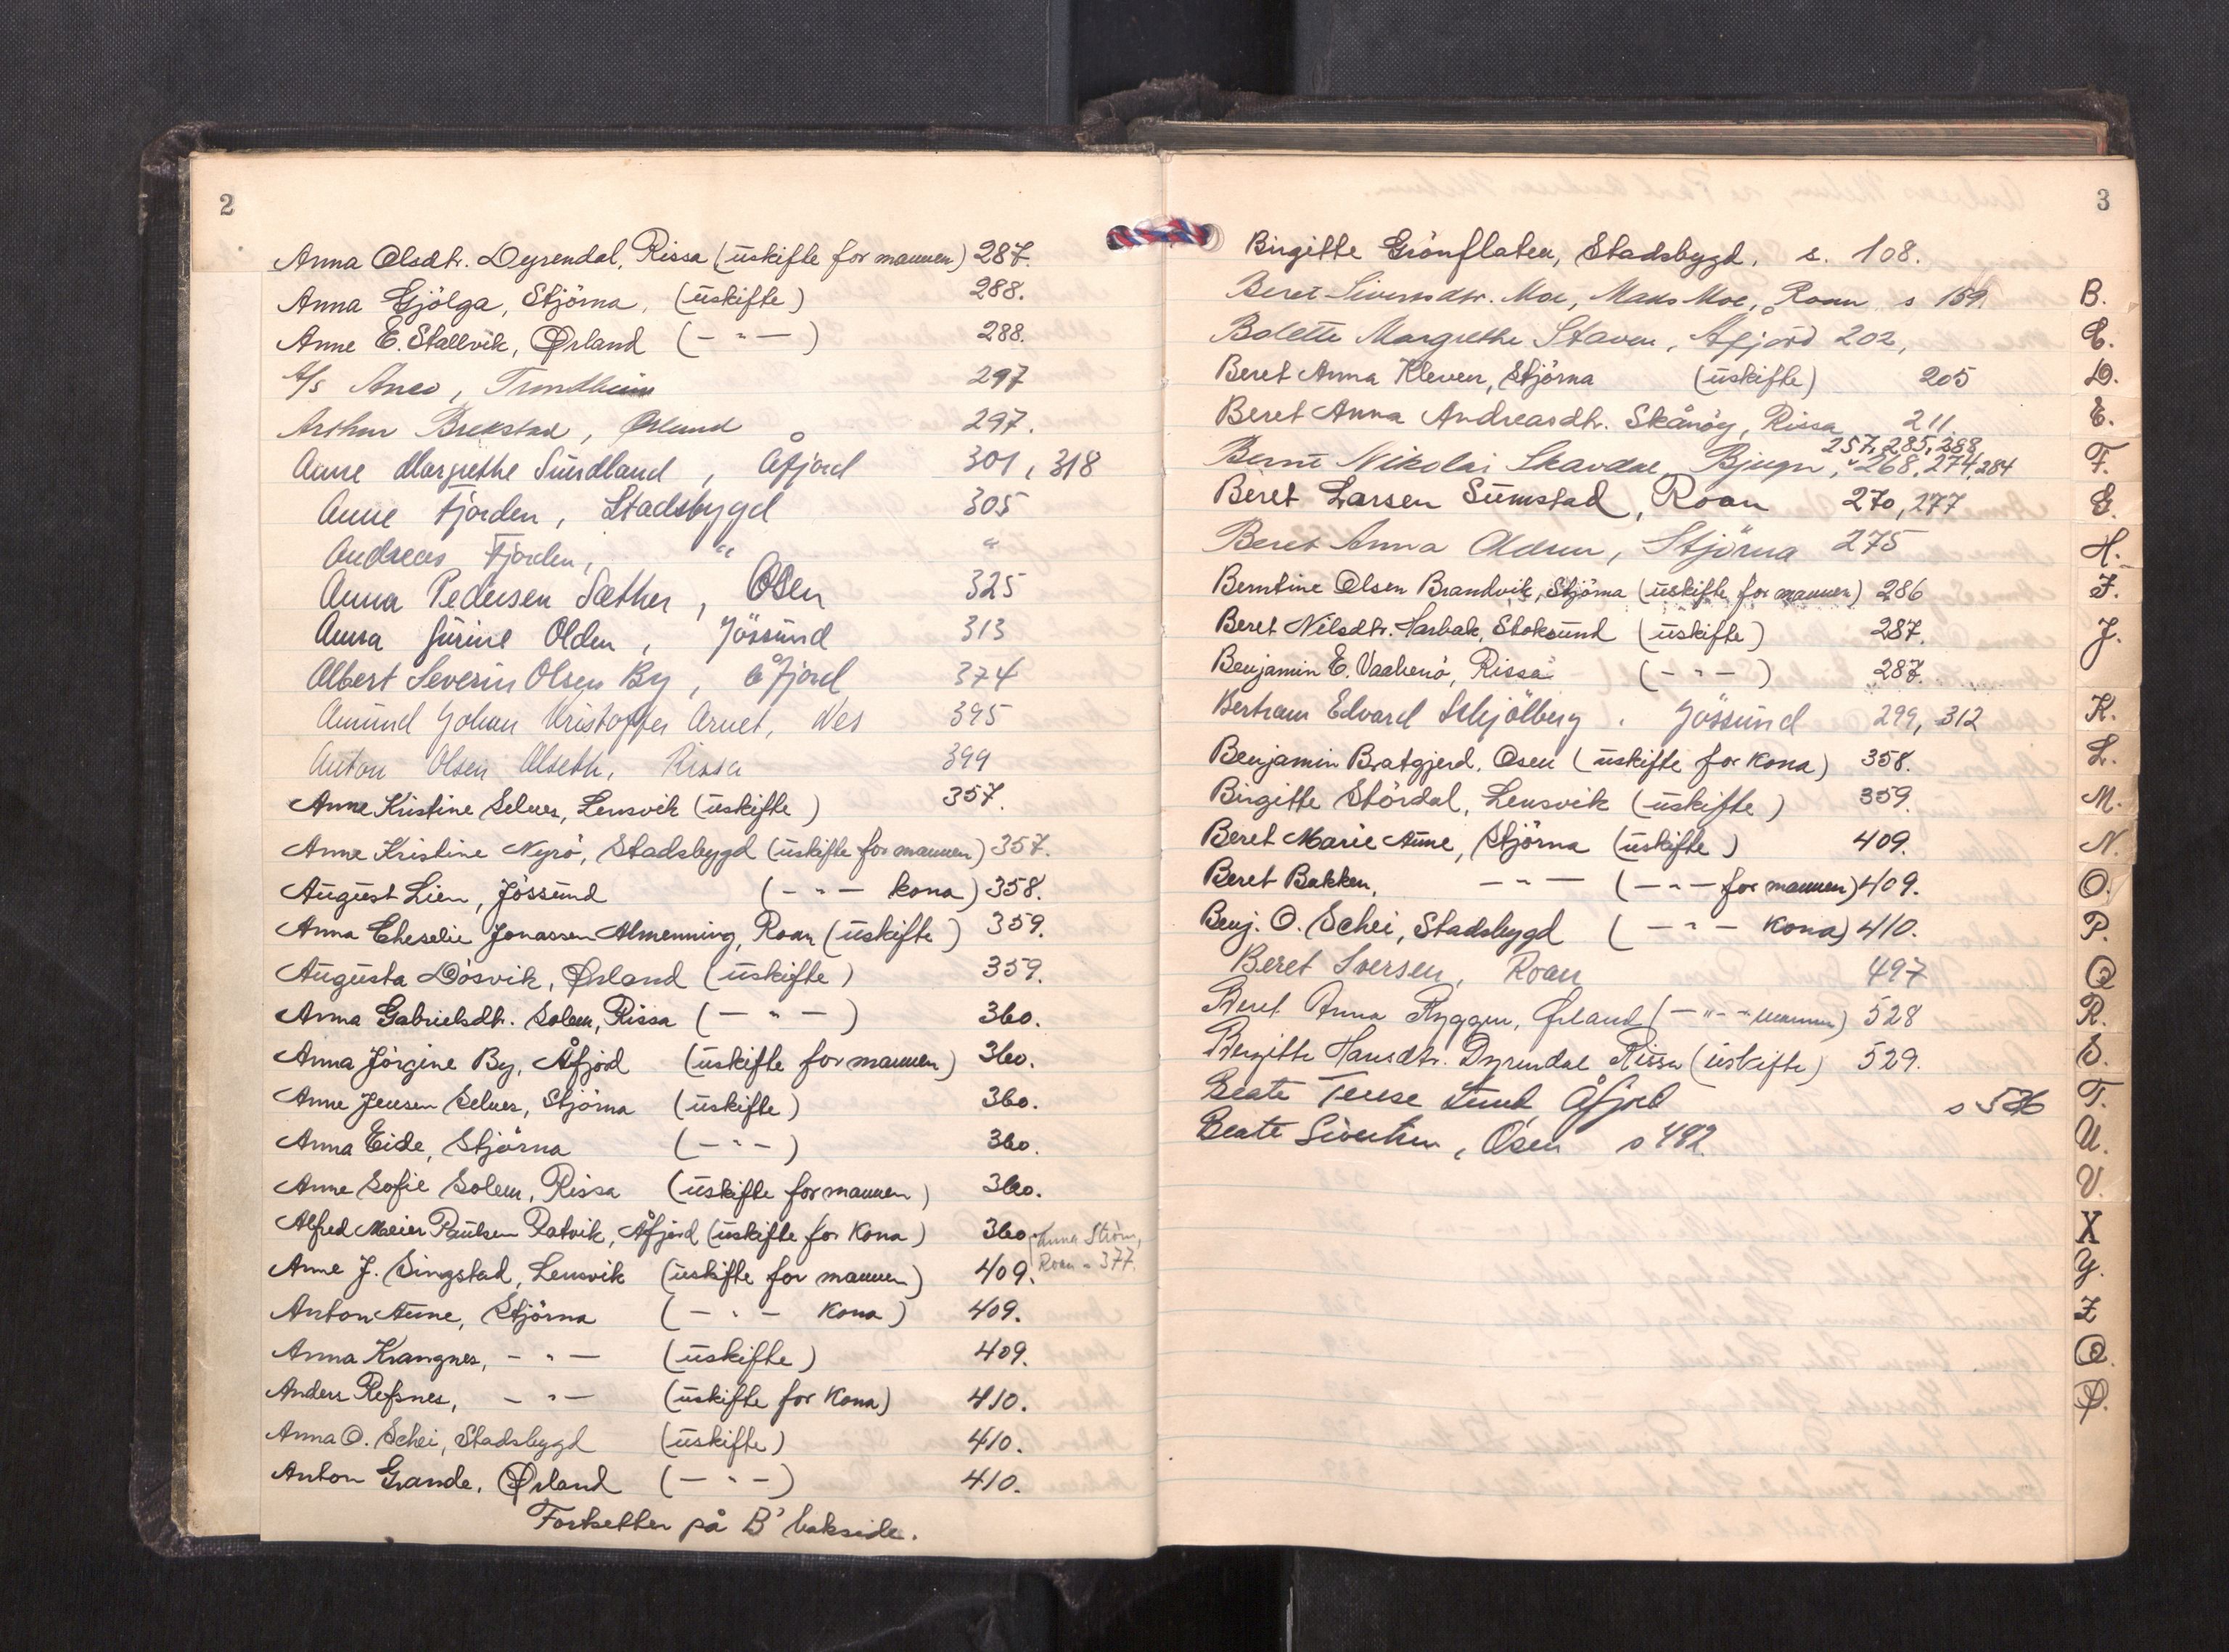 2
Anna Olsdtr. Dyrendal, Rissa (uskifte for mannen) 287.
Anna Gjölga, Stjörna, (uskifte) 288.
Anne E. Stallvik, Ørland (- " -) 288.
A/s Anco, Trondheim 297
Arthur Brekstad, Ørland 297.
Anne Margrethe Sundland, Åfjord 301, 318
Anne Fjorden, Stadsbygd 305
Andreas Fjorden, " "
Anna Pedersen Sæther, Osen 325
Anna Jurine Olden, Jössund 313
Albert Severin Olsen By, Åfjord 374
Amund Johan Kristoffer Arnet, Nes 395
Anton Olsen Alseth, Rissa 399
Anne Kristine Selnes, Lensvik (uskifte) 357.
Anne Kristine Nyrö, Stadsbygd (uskifte for mannen) 357.
August Lien, Jössund (- " - kona) 358.
Anna Eheselie Jonassen Almenning, Roan (uskifte) 359.
Augusta Dösvik, Ørland (uskifte) 359.
Anna Gabrielsdtr. Solem, Rissa (- " -) 360.
Anna Jörgine By, Åfjord (uskifte for mannen) 360.
Anne Jensen Selnes, Stjörna (uskifte) 360.
Anna Eide, Stjörna (- " -) 360.
Anne Sofie Solem, Rissa (uskifte for mannen) 360.
Alfred Meier Paulsen Ratvik, Åfjord (uskifte for kona) 360.
Anna Ström,
Roan - 377.
Anne J. Singstad, Lensvik (uskifte for mannen) 409.
Anton Aune, Stjörna (- " - kona) 409.
Anna Krangnes, - " - (uskifte) 409.
Anders Refsnes, - " - (uskifte for kona) 410.
Anna O. Schei, Stadsbygd (uskifte) 410.
Anton Grande, Ørland (- " -) 410.
Fortsetter på B' bakside.
3
Birgitte Grönflaten, Stadsbygd, s. 108.
Beret Sivertsdtr. Moe, Mads Moe, Roan s 159.
Bolette Margrethe Staven, Åfjord 202,
Beret Anna Kleven, Stjörna (uskifte) 205
Beret Anna Andreasdtr. Skånöy, Rissa 211.
257, 285, 288
Bernt Nikolai Skavdal, Bjugn, 268, 274, 284
Beret Larsen Sumstad, Roan 270, 277
Beret Anna Oldren, Stjörna 275
Berntine Olsen Brandvik, Stjörna (uskifte for mannen) 286
Beret Nilsdtr. Harbak, Stoksund (uskifte) 287.
Benjamin E. Vaabenö, Rissa (- " -) 287.
Bertram Edvard Schjölberg, Jössund 299, 312
Benjamin Bratgjerd, Osen (uskifte for kona) 358.
Birgitte Stördal, Lensvik (uskifte) 359.
Beret Marie Aune, Stjörna (uskifte) 409.
Beret Bakken, - " - (- " - for mannen) 409.
Benj. O. Schei, Stadsbygd (- " - kona) 410.
Beret Iversen, Roan 497
Beret Anna Ryggen, Ørland (- " - mannen) 528
Birgitte Hansdtr. Dyrendal Rissa (uskifte) 529.
Beate Terese Lund Åfjord s 536
Beate Sivertsen, Osen s 482.
B.
C.
D.
E.
F.
G.
H.
I.
J.
K.
L.
M.
N.
O.
P.
Q
R.
S.
T.
U.
V.
X
Y.
Z
Ø.